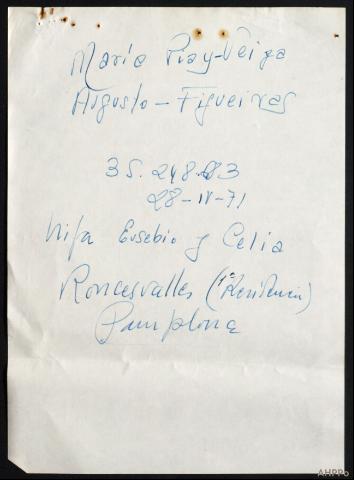 María Pray-Veiga
Augusto - Figueiras
35.248.
28-IV-71
Hija Eusebio y Celia
Roncesvalles (1ª Residencia)
Pamplona
AHPPo